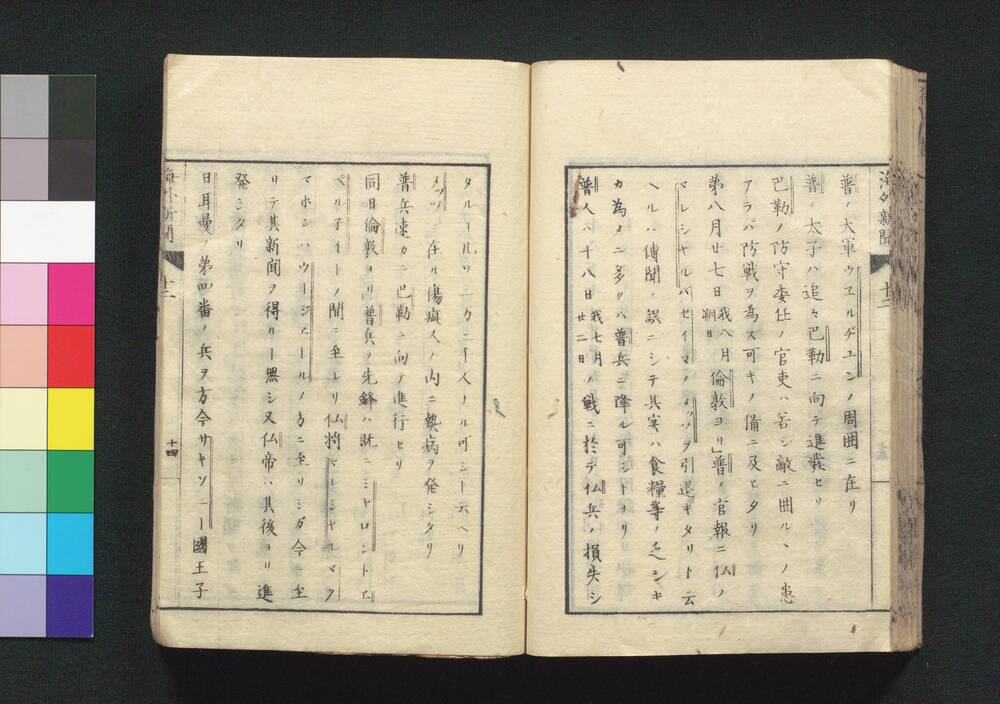 海外新聞
十二
普ノ大軍ウエルヂユンノ周囲ニ在リ
普ノ太子ハ追々巴勒ニ向テ進發セリ
巴勒ノ防守委任ノ官吏ハ若シ敵ニ囲ルヽノ患
アラハ防戦ヲ為ス可キノ備ニ及ヒタリ
第八月廿七日我八月朔日倫敦ヨリ」普ノ官報ニ仏ノ
マレシヤルバセイマノメッツヲ引退キタリト云
ヘルハ傳聞ノ誤ニシテ其実ハ食糧等ノ乏シキ
カ為メニ多クハ普兵ニ降ル可シトヨリ
普人ハ十八日我七月廿二日ノ戦ニ於テ仏兵ノ損失シ
タルールソニカニ千人ナル可シト云ヘリ
メッツニ在ル傷痍人ノ内ニ熱病ヲ発シタリ
普兵速カニ巴勒ニ向テ進行セリ
同日倫敦ヨリ」普兵ノ先鋒ハ既ニミヤロントヒ
ペリ子イトノ間ニ至レリ仏将マレシヤルマク
マホンハウージエールノ方ニ至リシガ今ニ至
リテ其新聞ヲ得ルー無シ又仏帝ハ其後ヨリ進
発シタリ
日耳曼ノ第四番ノ兵ヲ方今サキソニー國王子
海外新聞
十二
十四